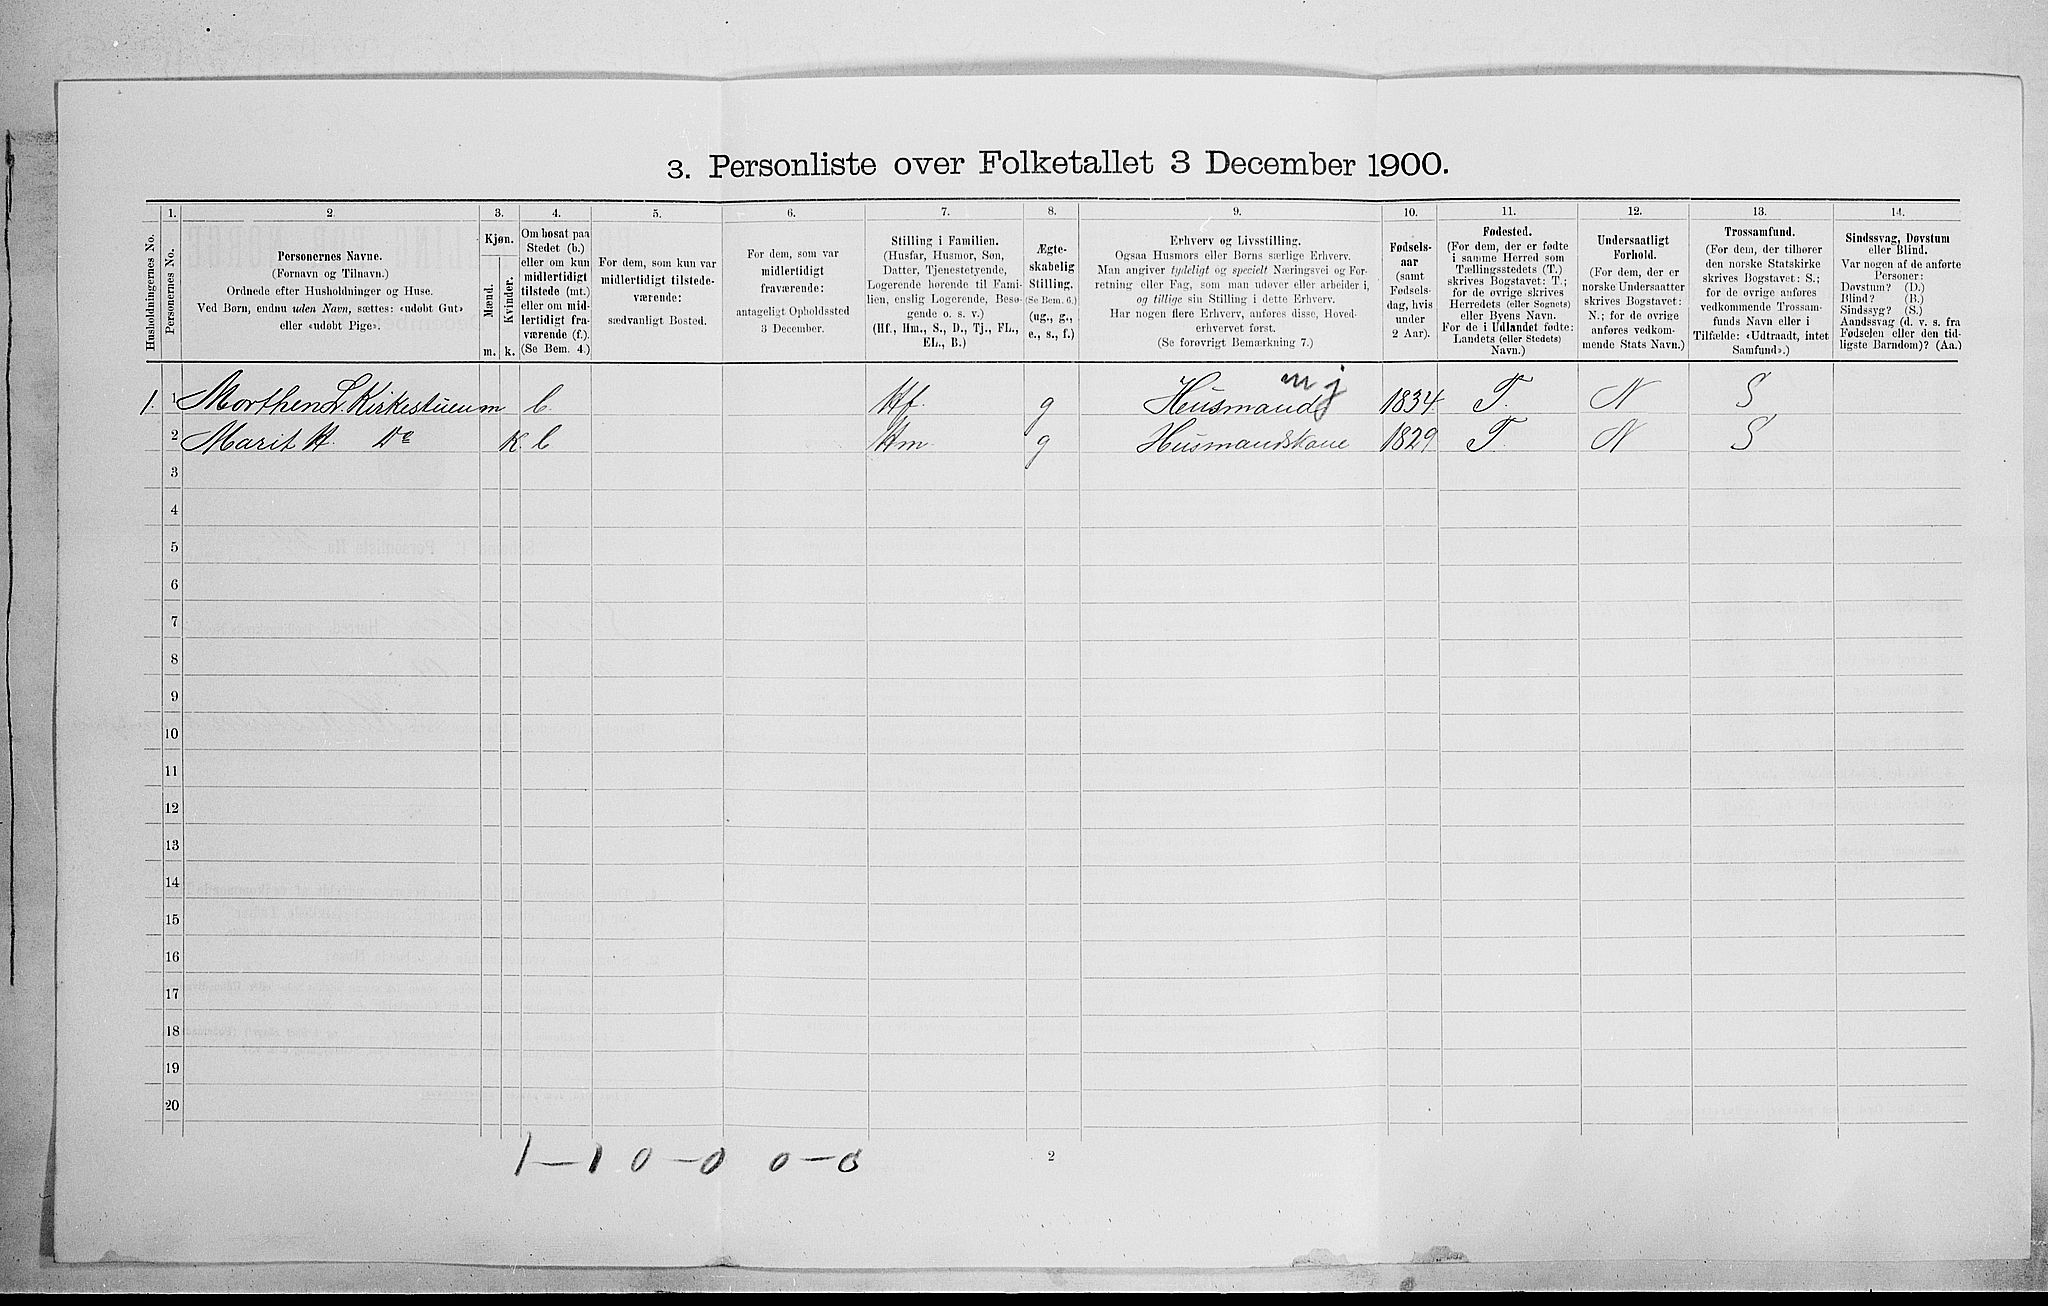 3. Personliste over Folketallet 3 December 1900.
1. 2. 3. 4. 5. 6. 7. 8. 9. 10. 11. 12. 13. 14.
Husholdningernes No.
Personernes No.
Personernes Navne.
(Fornavn og Tilnavn.)
Ordnede efter Husholdninger og Huse.
Ved Børn, endnu uden Navn, sættes: «udøbt Gut»
eller «udøbt Pige».
Kjøn.
Mænd.
Kvinder.
m. k.
Om bosat paa
Stedet (b.)
eller om kun
midlertidigt
tilstede (mt.)
eller om mid-
lertidigt fra-
værende (f.).
(Se Bem. 4.)
For dem, som kun var
midlertidigt tilstede-
værende:
sædvanligt Bosted.
For dem, som var
midlertidigt
fraværende:
antageligt Opholdssted
3 December.
Stilling i Familien.
(Husfar, Husmor, Søn,
Datter, Tjenestetyende,
Logerende hørende til Fami-
lien, enslig Logerende, Besø-
gende o. s. v.)
(Hf., Hm., S., D., Tj., FL.,
EL., B.)
Ægte-
skabelig
Stilling.
(Se Bem. 6.)
(ug., g.,
e., s., f.)
Erhverv og Livsstilling.
Ogsaa Husmors eller Børns særlige Erhverv.
Man angiver tydeligt og specielt Næringsvei og For-
retning eller Fag, som man udøver eller arbeider i,
og tillige sin Stilling i dette Erhverv.
Har nogen flere Erhverv, anføres disse, Hoved-
erhvervet først.
(Se forøvrigt Bemærkning 7.)
Fødsels-
aar
(samt
Fødsels-
dag, hvis
under
2 Aar).
Fødested.
(For dem, der er fødte
i samme Herred som
Tællingsstedets (T.)
skrives Bogstavet: T.;
for de øvrige skrives
Herredets (eller Sognets)
eller Byens Navn.
For de i Udlandet fødte:
Landets (eller Stedets)
Navn.)
Undersaatligt
Forhold.
(For dem, der er
norske Undersaatter
skrives Bogstavet:
N.; for de øvrige
anføres vedkom-
mende Stats Navn.)
Trossamfund.
(For dem, der tilhører
den norske Statskirke
skrives Bogstavet: S.;
for de øvrige anføres
vedkommende Trossam-
funds Navn eller i
Tilfælde: «Udtraadt, intet
Samfund».)
Sindssvag, Døvstum
eller Blind.
Var nogen af de anførte
Personer:
Døvstum? (D.)
Blind? (B.)
Sindssyg? (S.)
Aandssvag (d. v. s. fra
Fødselen eller den tid-
ligste Barndom)? (Aa.)
m j
1. 1 Morthen L. Kirkestuen m b. Hf. g Husmand 1834 T. N S
2 Marit H. Do k. b Hm. g Husmandskone 1829 T. N S
3
4
5
6
7
8
9
10
11
12
13
14
15
16
17
18
19
20
1–1 0–0 0–0
2